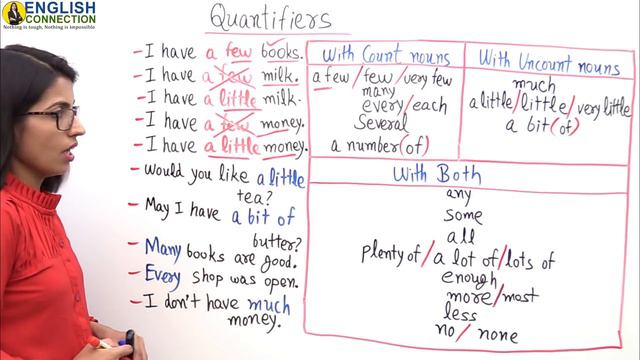 ENGLISH
CONNECTION
Nothing is tough, Nothing is impossible
Quantifiers
- I have a few books.
- I have a few milk.
- I have a little milk.
- I have a few money.
- I have a little money.
- would you like a little
tea?
- May I have a bit of
butter?
- Many books are good.
- Every shop was open.
- I don't have much
money.
With Count nouns
a few / few / very few
many
every / each
Several
a number (of)
With Uncount nouns
much
a little / little / very little
a bit (of)
With Both
any
some
all
plenty of / a lot of / lots of
enough
more / most
less
no / none